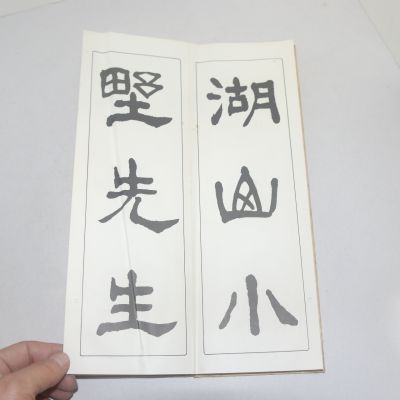 湖山小
墅先生